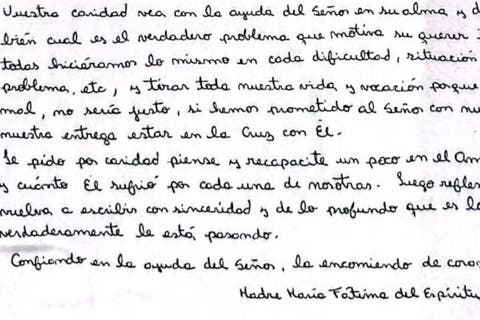 Vuestra caridad vea con la ayuda del Señor en su alma y d
bién cual es el verdadero problema que motiva su querer
todas hiciéramos lo mismo en cada dificultad, situación
problema, etc, y tirar toda nuestra vida y vocación porque
mal, no sería justo, si hemos prometido al Señor con nu
nuestra entrega estar en la Cruz con Él.
Le pido por caridad piense y recapacite un poco en el Am
y cuánto Él sufrió por cada una de nosotras. Luego refle
vuelva a escribir con sinceridad y de lo profundo que es lo
verdaderamente le está pasando.
Confiando en la ayuda del Señor, la encomiendo de coraz
Madre María Fátima del Espíritu